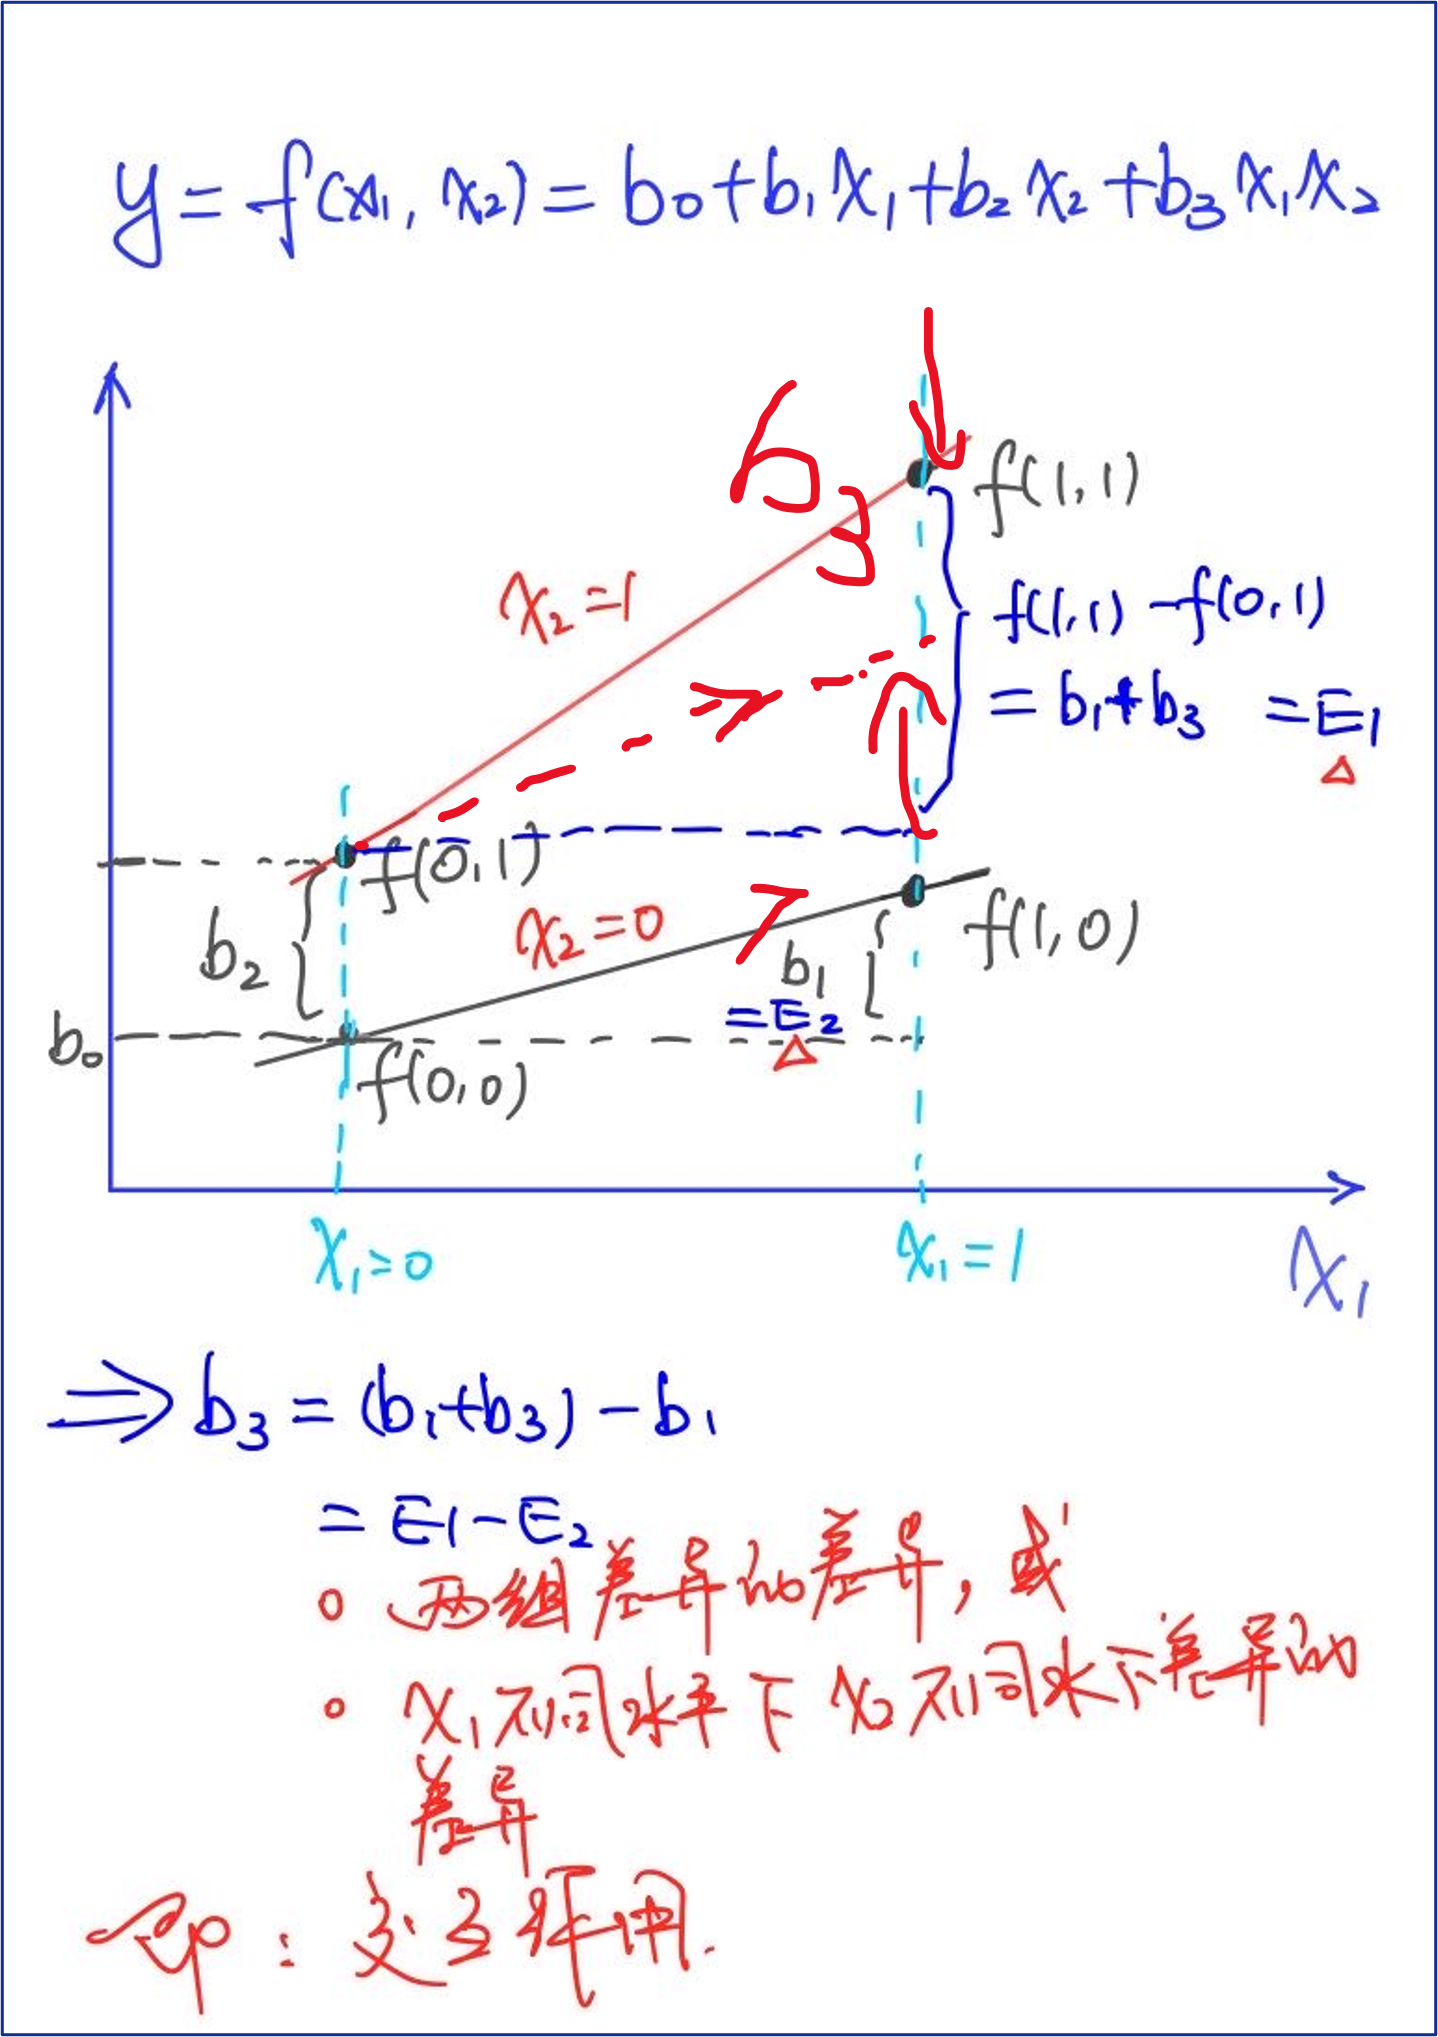 y = f(x₁, x₂) = b₀ + b₁x₁ + b₂x₂ + b₃x₁x₂
b₃
f(1,1)
x₂=1
f(1,1) - f(0,1)
= b₁+b₃ = E₁
△
f(0,1)
x₂=0
f(1,0)
b₂
b₁
= E₂
△
b₀
f(0,0)
x₁=0
x₁=1
x₁
⇒ b₃ = (b₁+b₃) - b₁
= E₁ - E₂
○ 两组差异的差异，或
○ x₁不同水平下x₂不同水下差异的
差异
即：交互作用.